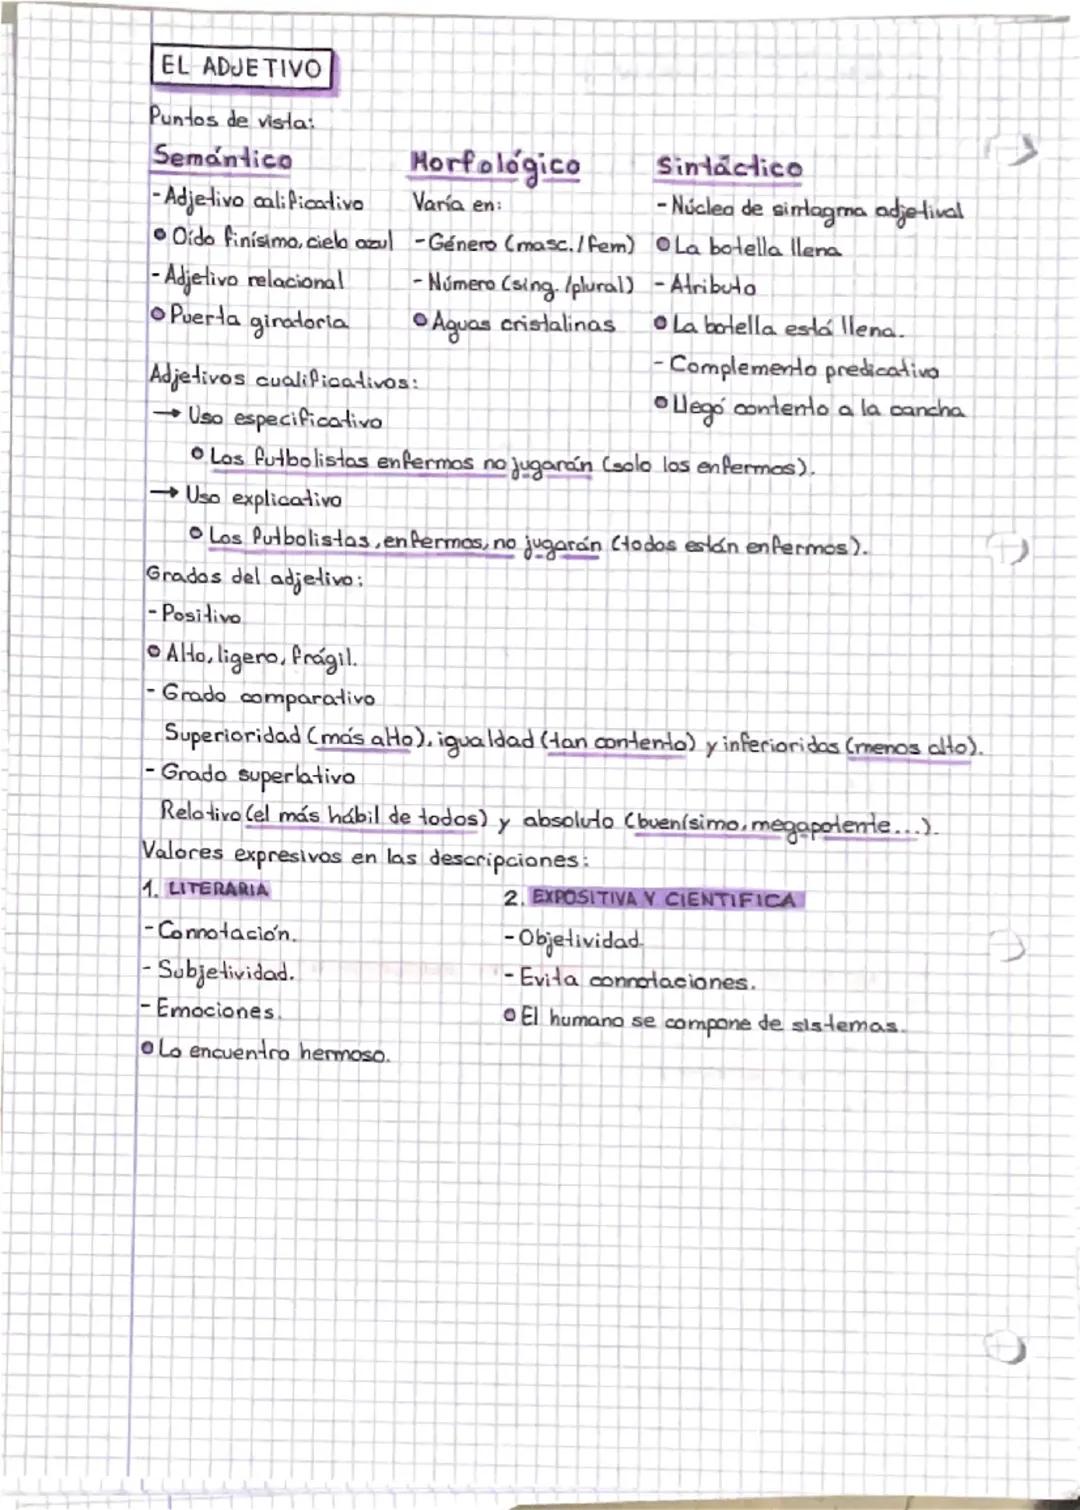 EL ADJETIVO
Puntos de vista:
Semántico
- Adjetivo calificativo
• Oído finísimo, cielo azul
- Adjetivo relacional
• Puerta giratoria
Morfológico
Varía en:
- Género (masc./fem)
- Número (sing./plural)
• Aguas cristalinas
Sintáctico
- Núcleo de sintagma adjetival
• La botella llena
- Atributo
• La botella está llena.
- Complemento predicativo
• Llegó contento a la cancha
Adjetivos cualificativos:
→ Uso especificativo
• Los futbolistas enfermos no jugarán (solo los enfermos).
→ Uso explicativo
• Los futbolistas, enfermos, no jugarán (todos están enfermos).
Grados del adjetivo:
- Positivo
• Alto, ligero, frágil.
- Grado comparativo
Superioridad (más alto), igualdad (tan contento) y inferioridas (menos alto).
- Grado superlativo
Relativo (el más hábil de todos) y absoluto (buenísimo, megapotente...).
Valores expresivos en las descripciones:
1. LITERARIA
- Connotación.
- Subjetividad.
- Emociones.
• Lo encuentro hermoso.
2. EXPOSITIVA Y CIENTIFICA
- Objetividad.
- Evita connotaciones.
• El humano se compone de sistemas.